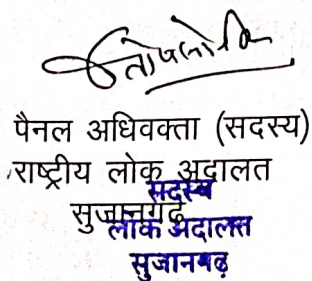 पैनल अधिवक्ता (सदस्य)
राष्ट्रीय लोक अदालत
सदस्य
सुजानगढ़
लोक अदालत
सुजानगढ़